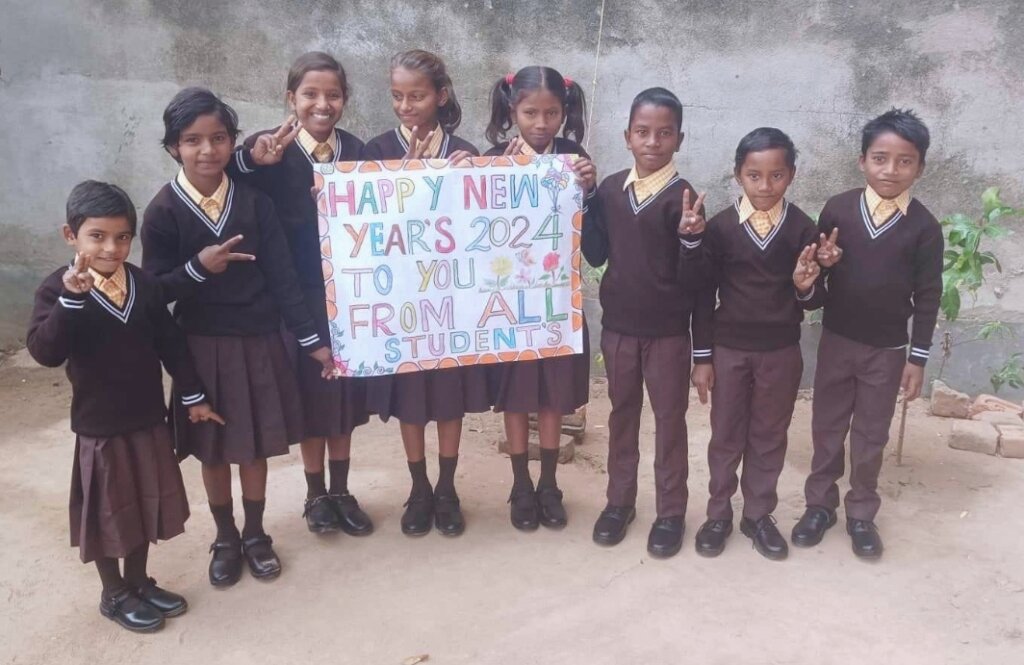 HAPPY NEW
YEAR'S 2024
TO YOU
FROM ALL
STUDENT'S